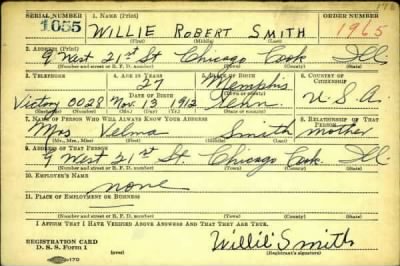 SERIAL NUMBER
1. NAME (Print)
ORDER NUMBER
1055
WILLIE ROBERT SMITH
1965
(First) (Middle) (Last)
2. ADDRESS (Print)
9 West 21st St Chicago Cook Ill
(Number and street or R. F. D. number) (Town) (County) (State)
3. TELEPHONE
4. AGE IN YEARS
5. PLACE OF BIRTH
6. COUNTRY OF CITIZENSHIP
27
Memphis
DATE OF BIRTH
(Town or county)
Victory 0028 Nov. 13 1912 Tenn. U.S.A.
(Exchange) (Number) (Mo.) (Day) (Yr.) (State or country)
7. NAME OF PERSON WHO WILL ALWAYS KNOW YOUR ADDRESS
8. RELATIONSHIP OF THAT PERSON
Mrs Velma Smith mother
(Mr., Mrs., Miss) (First) (Middle) (Last)
9. ADDRESS OF THAT PERSON
9 West 21st St. Chicago Cook Ill
(Number and street or R. F. D. number) (Town) (County) (State)
10. EMPLOYER'S NAME
none
11. PLACE OF EMPLOYMENT OR BUSINESS
(Number and street or R. F. D. number) (Town) (County) (State)
I AFFIRM THAT I HAVE VERIFIED ABOVE ANSWERS AND THAT THEY ARE TRUE.
REGISTRATION CARD
D. S. S. Form 1
(over)
Willie Smith
(Registrant's signature)